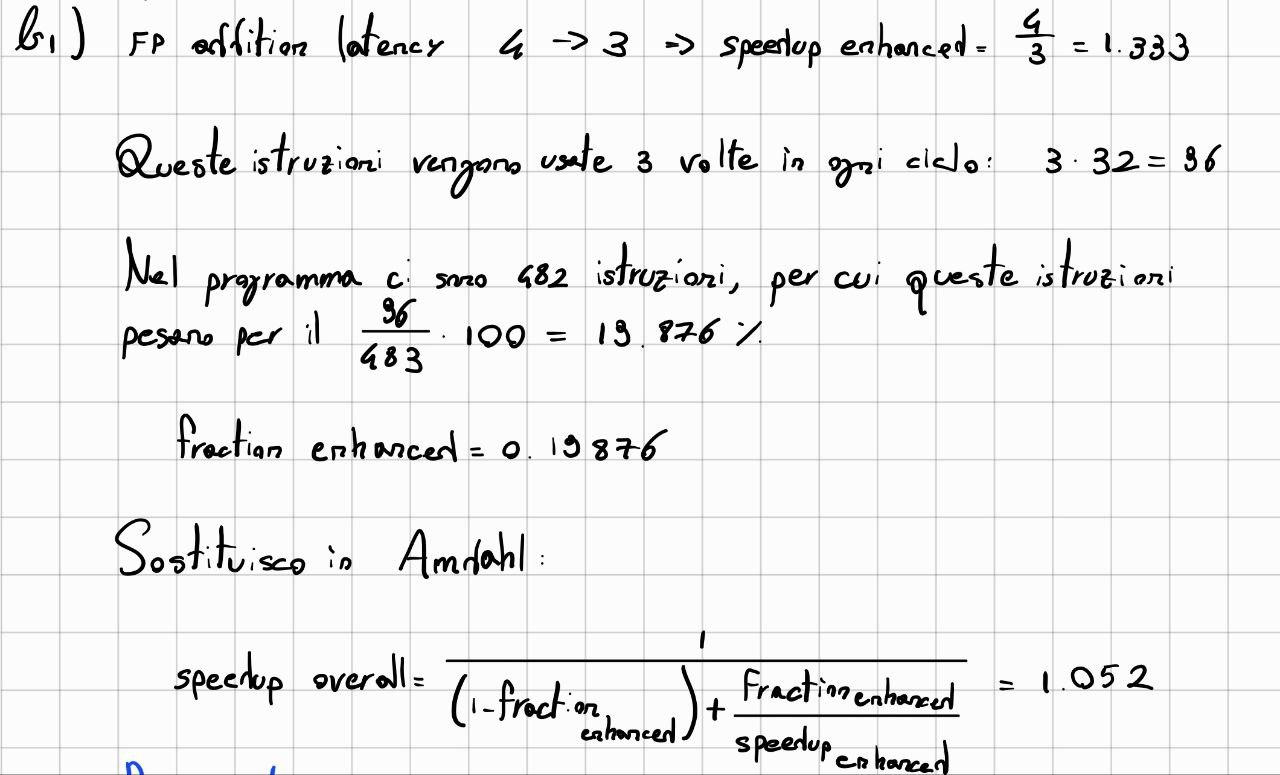 b1) FP addition latency 4 → 3 ⇒ speedup enhanced = 4/3 = 1.333
Queste istruzioni vengono usate 3 volte in ogni ciclo: 3 · 32 = 96
Nel programma ci sono 482 istruzioni, per cui queste istruzioni
pesano per il 96/483 · 100 = 19.876 %
fraction enhanced = 0.19876
Sostituisco in Amdahl:
speedup overall = 1 / ((1 - fraction enhanced) + Fraction enhanced / speedup enhanced) = 1.052